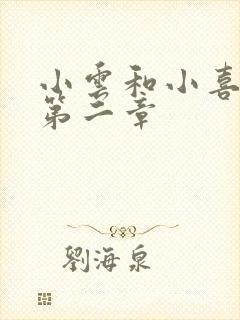 小雲和小喜
第二章
劉海泉